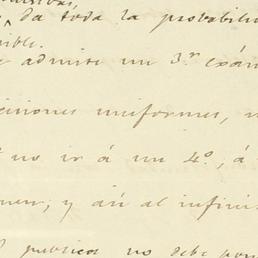 da toda la probabili
sible.
admite un 3.r Exám
iciones uniformes, n
no ir á un 4.º, á
men; y así al infini
publicos no debe pon